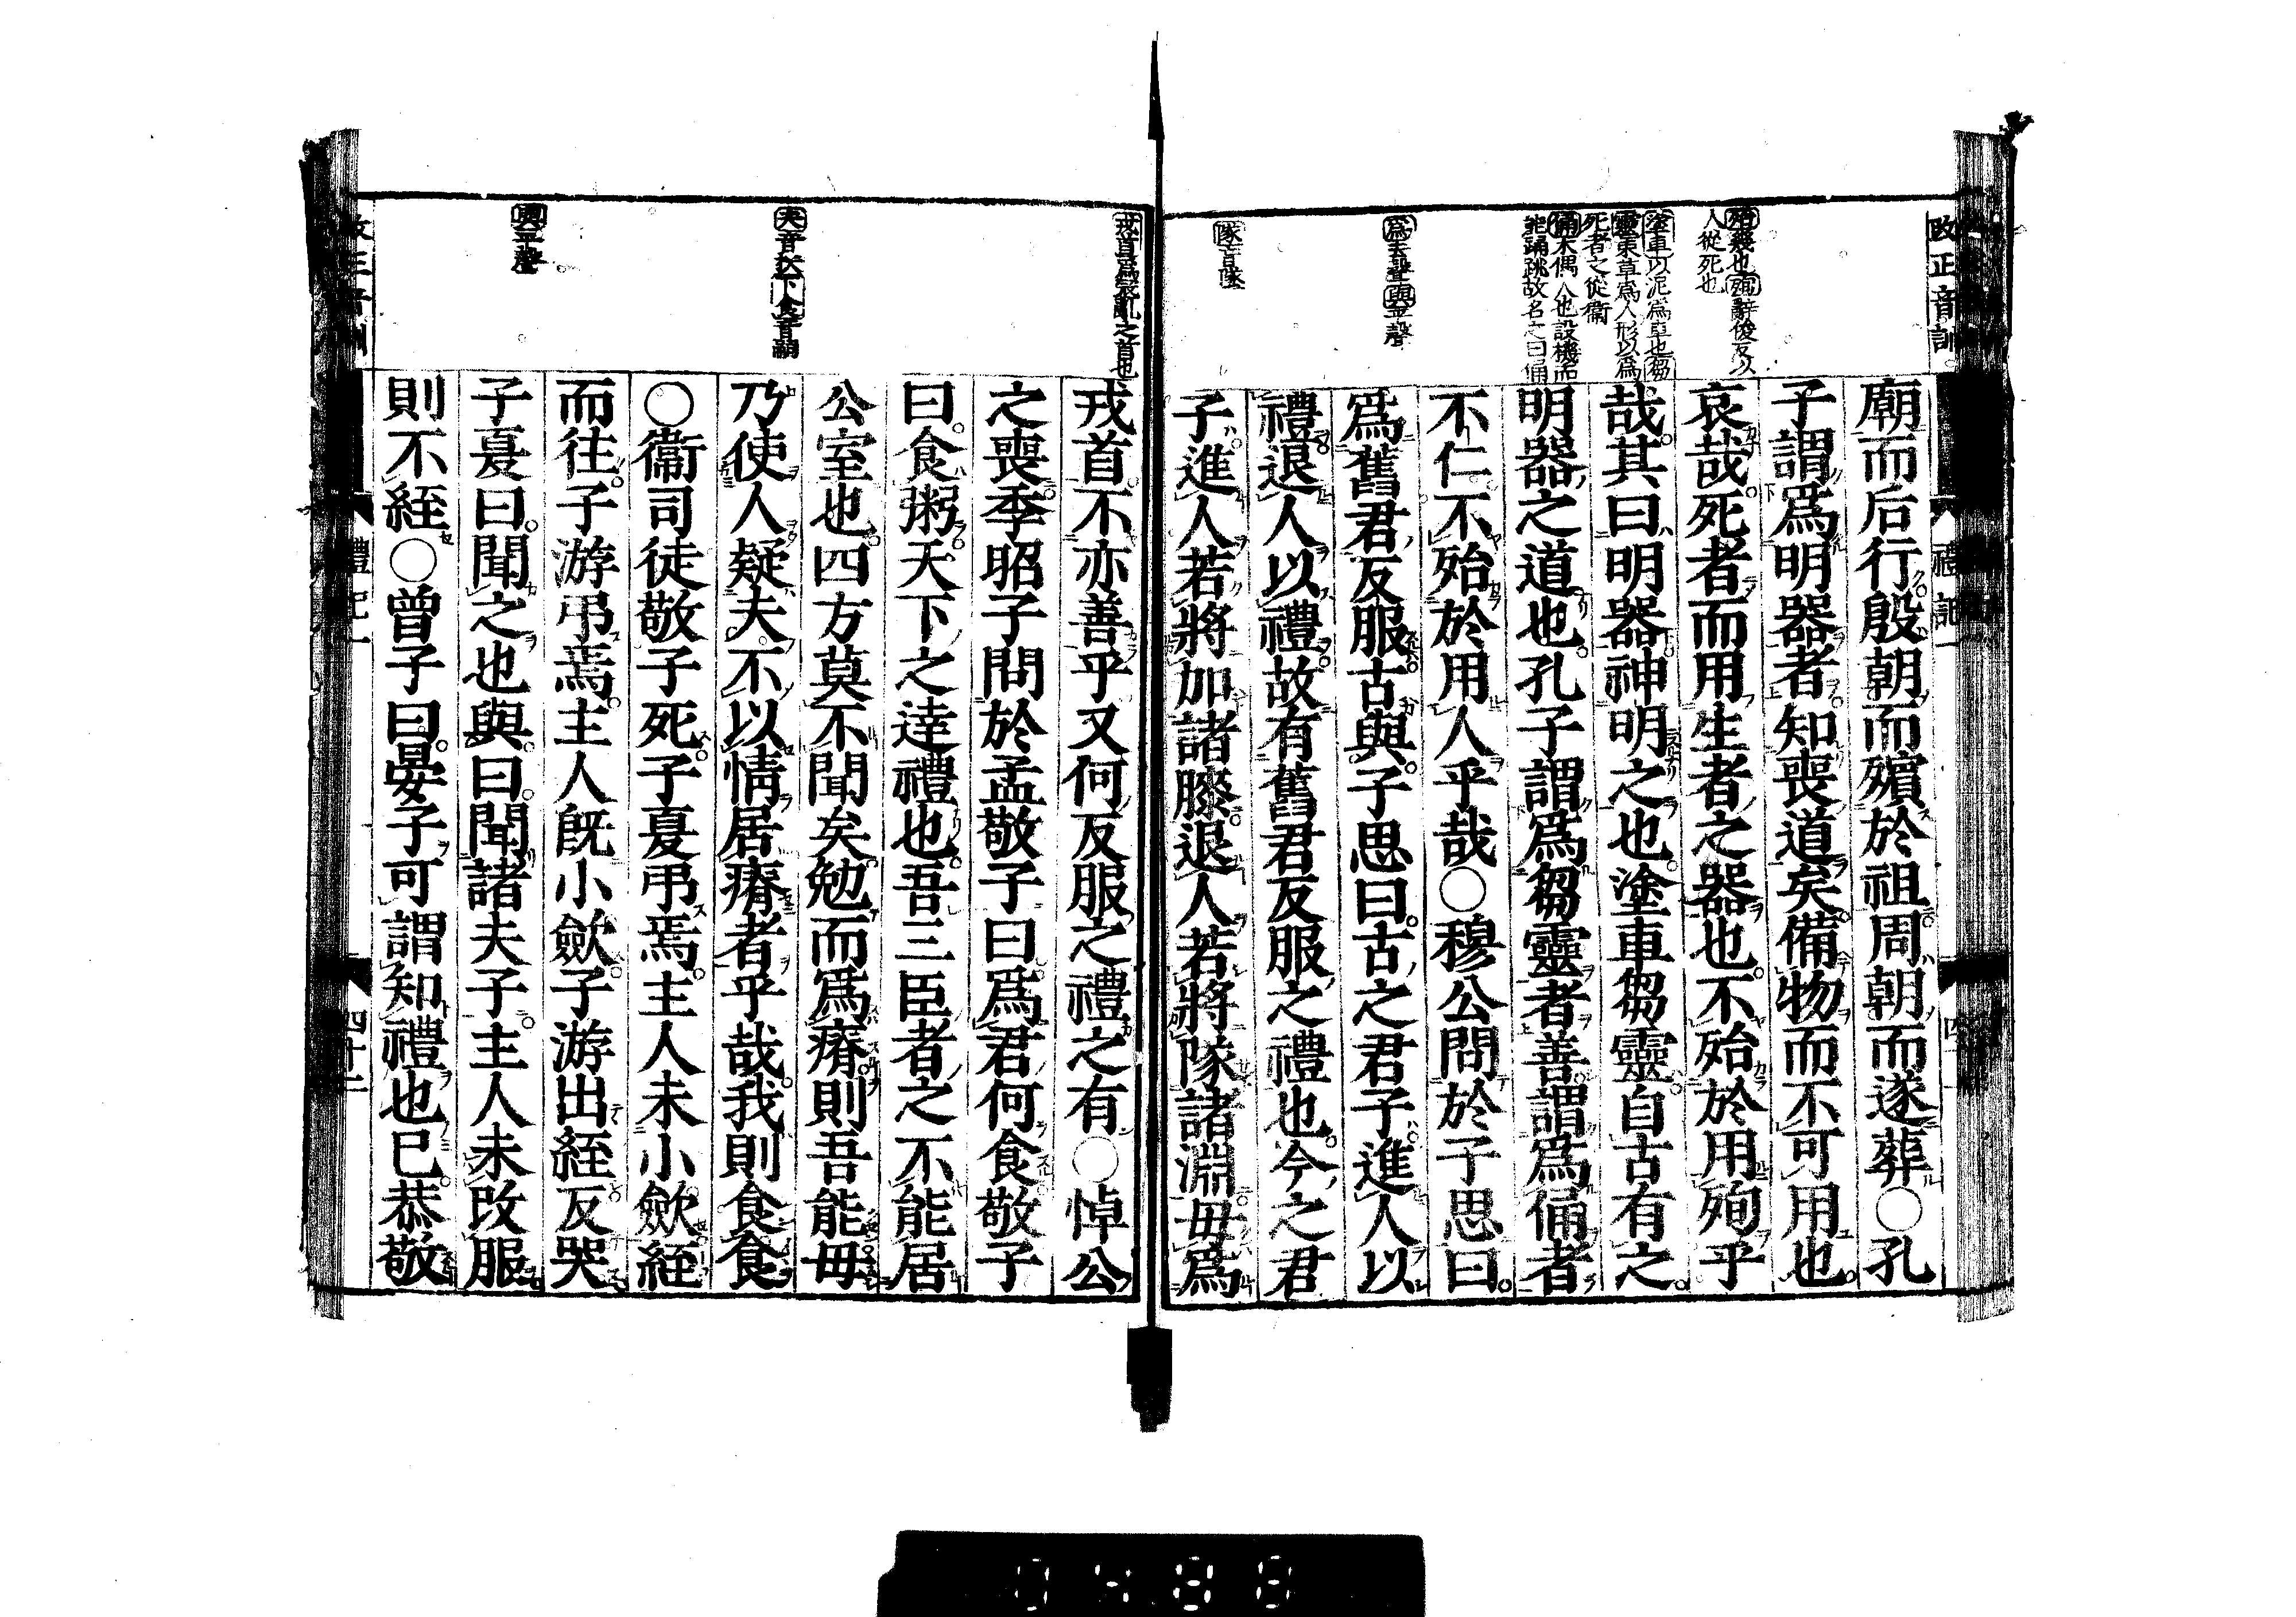 改正音訓
禮記一
殆幾也殉辭俊反以
人從死也
塗車以泥爲車也芻
靈束草爲人形以爲
死者之從衛
俑木偶人也設機而
能踊跳故名之曰俑
爲去聲與平聲
隊音墜
廟而后行殷朝而殯於祖周朝而遂葬○孔
子謂爲明器者知喪道矣備物而不可用也
哀哉死者而用生者之器也不殆於用殉乎
哉其曰明器神明之也塗車芻靈自古有之
明器之道也孔子謂爲芻靈者善謂爲俑者
不仁不殆於用人乎哉○穆公問於子思曰
爲舊君反服古與子思曰古之君子進人以
禮退人以禮故有舊君反服之禮也今之君
子進人若將加諸膝退人若將隊諸淵毋爲
戎首爲寇亂之首也
夫音扶下食音嗣
與平聲
戎首不亦善乎又何反服之禮之有○悼公
之喪季昭子問於孟敬子曰爲君何食敬子
曰食粥天下之達禮也吾三臣者之不能居
公室也四方莫不聞矣勉而爲瘠則吾能毋
乃使人疑夫不以情居瘠者乎哉我則食食
○衞司徒敬子死子夏弔焉主人未小歛絰
而往子游弔焉主人既小歛子游出絰反哭
子夏曰聞之也與曰聞諸夫子主人未改服
則不絰○曽子曰晏子可謂知禮也已恭敬
禮記一
四十二